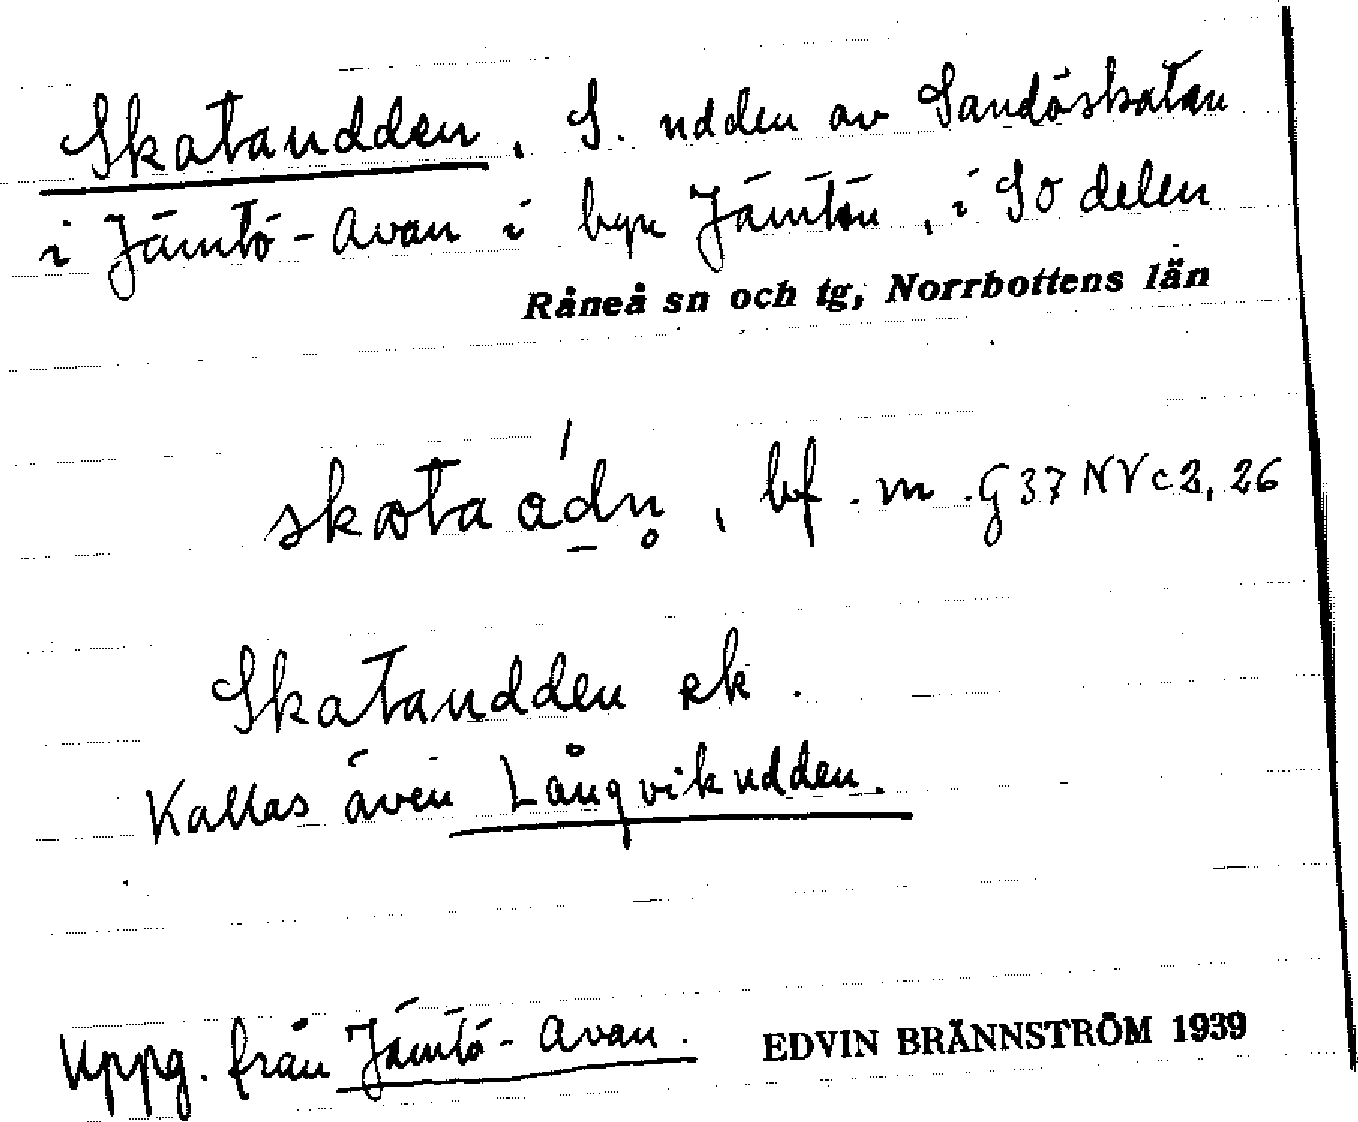 Skataudden, S. udden av Sandöskatan
i Jämtö-Avan i byn Jämtön, i SO delen
Råneå sn och tg, Norrbottens län
skɒta ɑ́dn̥, bf. m. G 37 NV c 2, 26
Skataudden ek.
Kallas även Långvikudden.
Uppg. från Jämtö-Avan.
EDVIN BRÄNNSTRÖM 1939